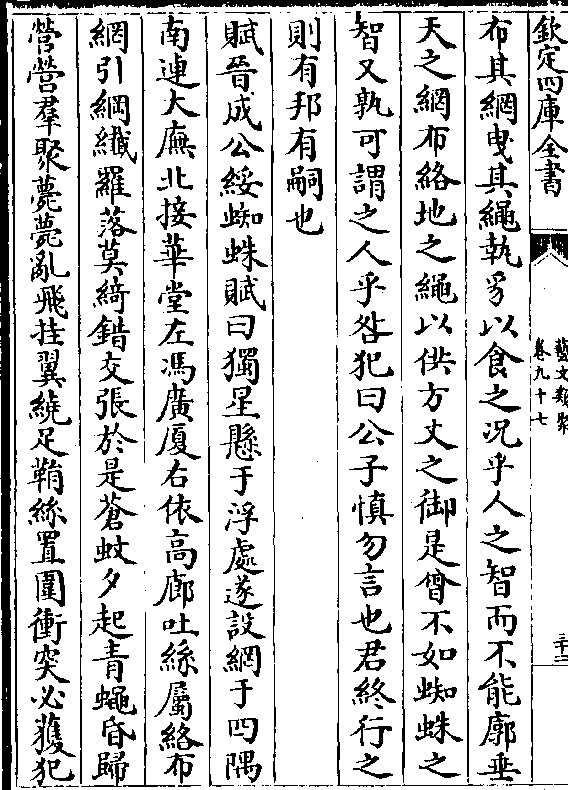 欽定四庫全書
藝文類聚
卷九十七
三十二
布其網曳其繩執豸以食之况乎人之智而不能廓垂
天之網布絡地之繩以供方丈之御是曾不如蜘蛛之
智又孰可謂之人乎咎犯曰公子慎勿言也君終行之
則有邦有嗣也
賦晉成公綏蜘蛛賦曰獨星懸于浮處遂設網于四隅
南連大廡北接華堂左馮廣厦右依高廊吐絲屬絡布
網引綱纎羅落莫綺錯交張於是蒼蚊夕起青蠅昏歸
營營羣聚薨薨亂飛挂翼繞足鞘絲置圍衝突必獲犯